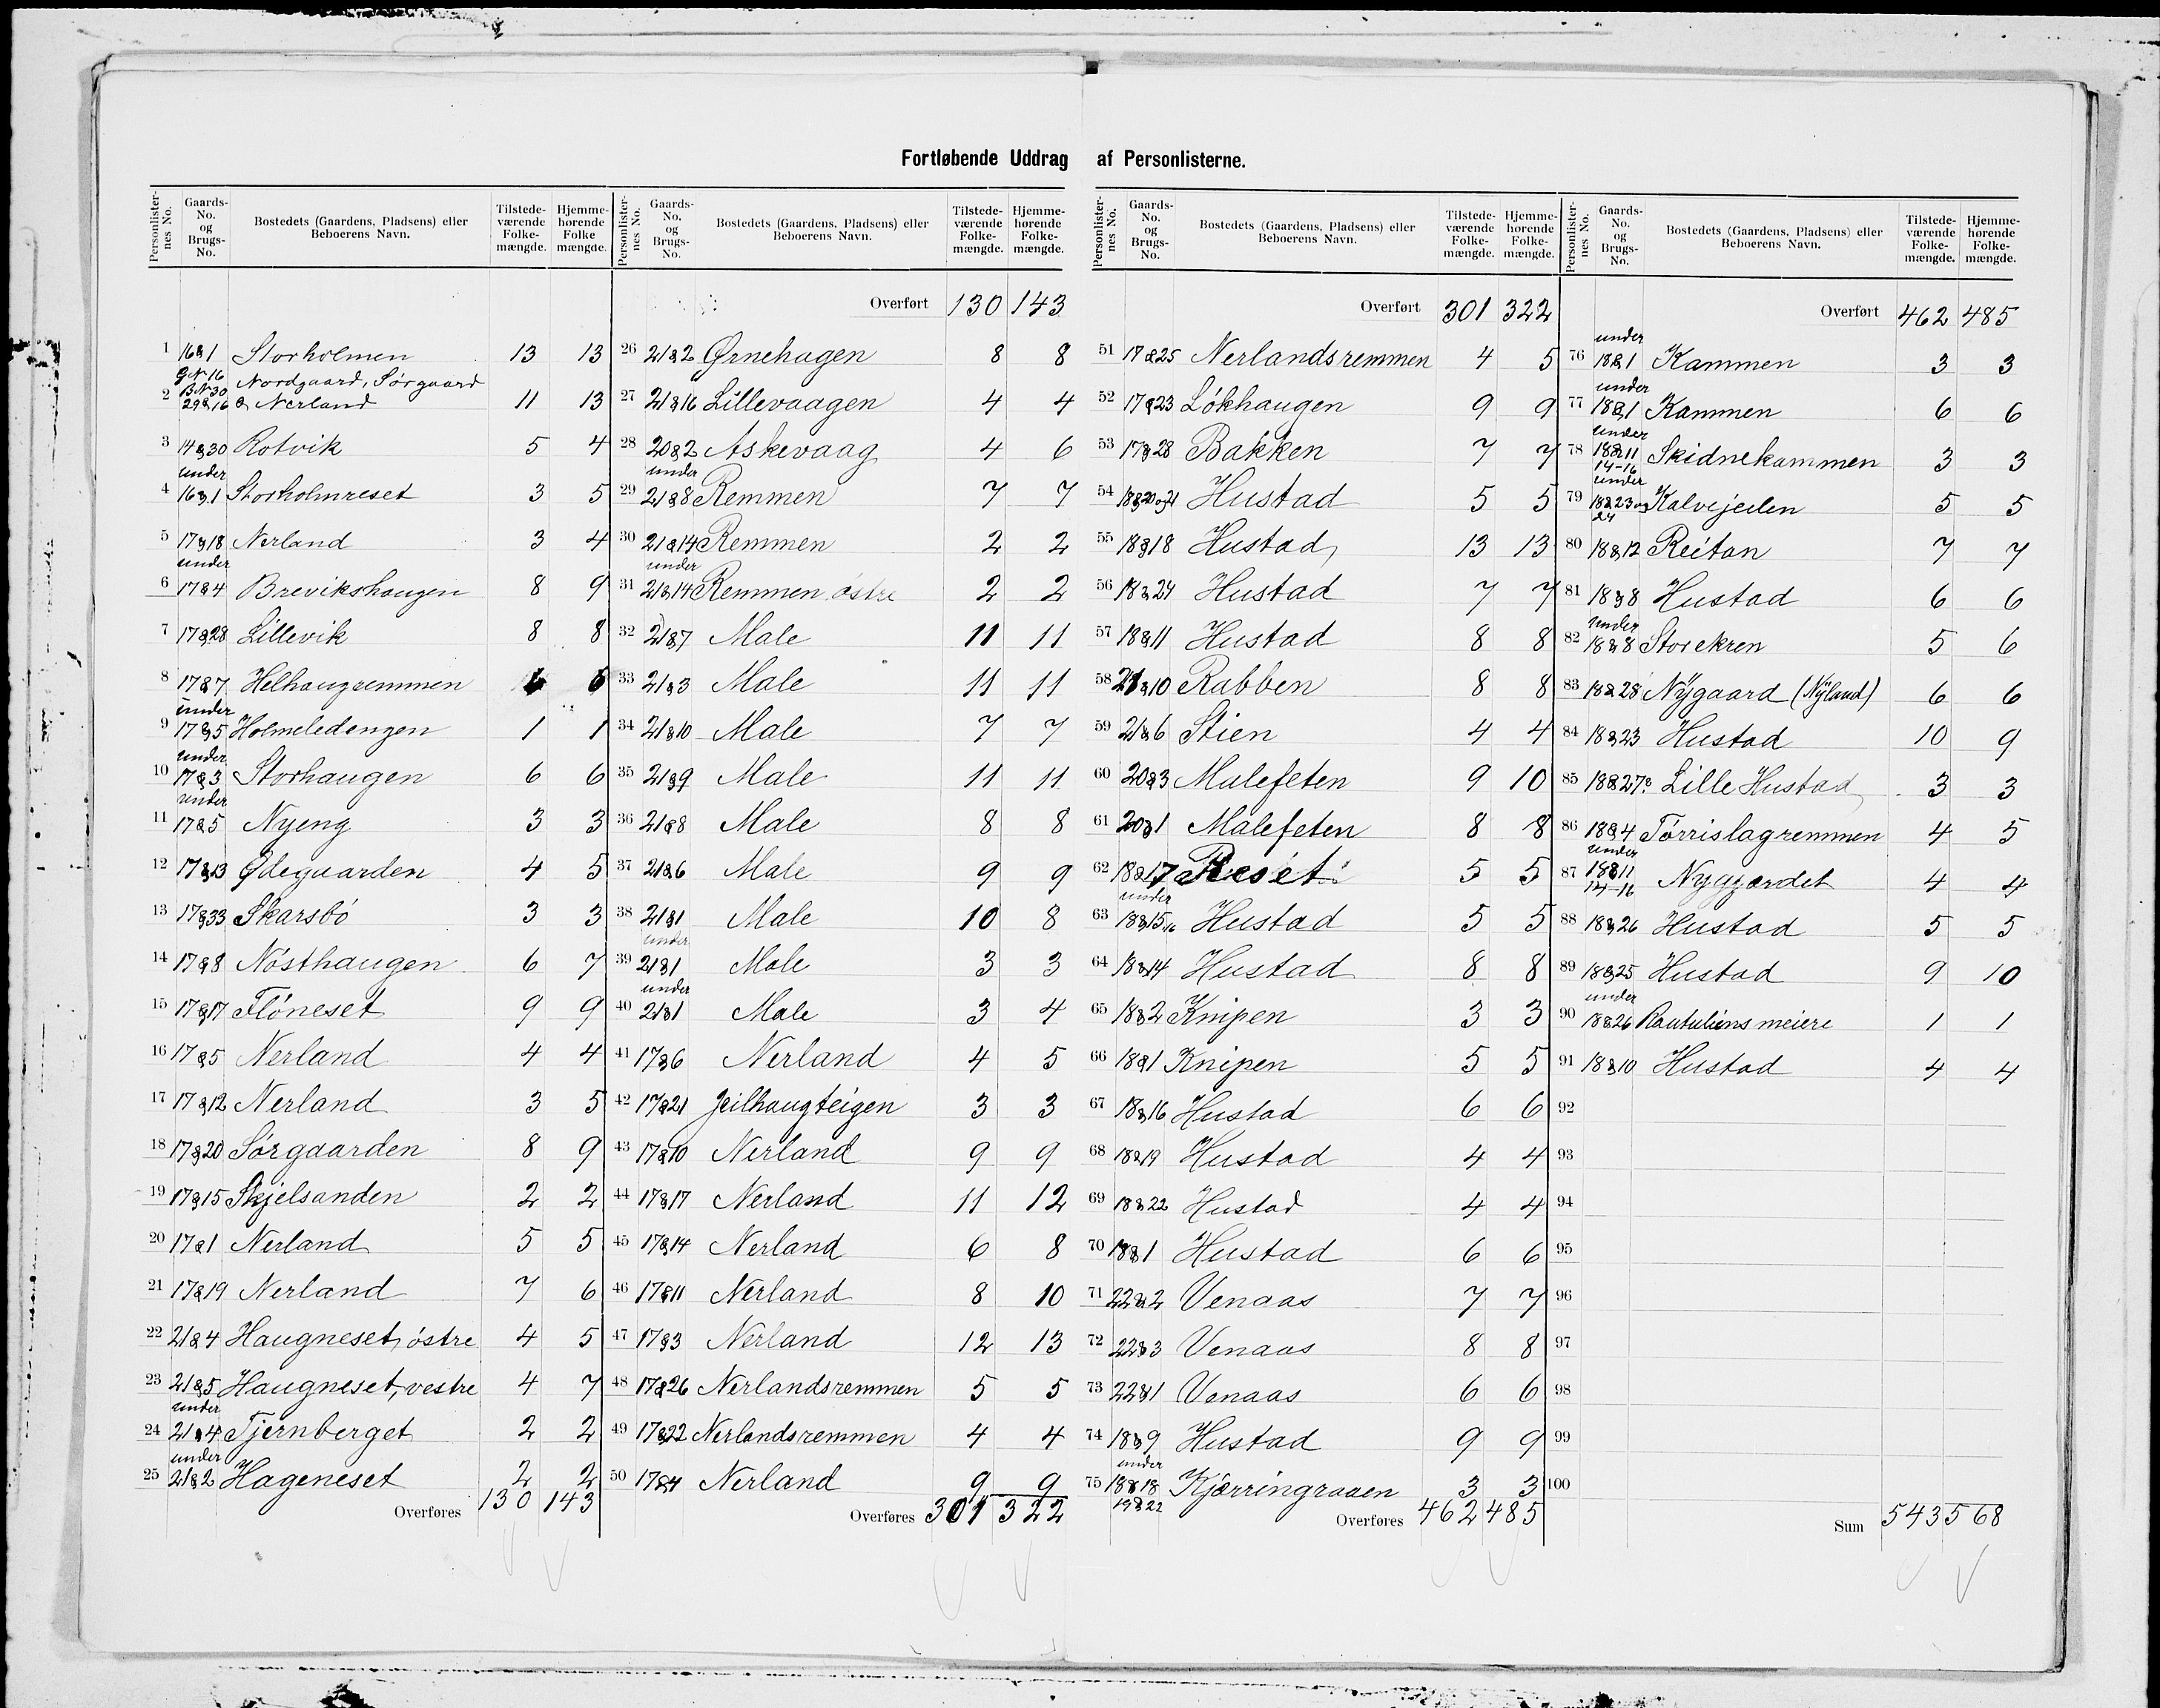 Fortløbende Uddrag af Personlisterne.
Personlister-nes No. | Gaards-No. og Brugs-No. | Bostedets (Gaardens, Pladsens) eller Beboerens Navn. | Tilstede-værende Folke-mængde. | Hjemme-hørende Folke mængde.
1 16&1 Storholmen 13 13
2 G.N. 16 B.N. 30 29&16 Nordgaard, Sørgaard & Nerland 11 13
3 14&30 Rotvik 5 4
4 under 16&1 Storholmreset 3 5
5 17&18 Nerland 3 4
6 under 17&4 Brevikshaugen 8 9
7 17&28 Lillevik 8 8
8 17&7 Helhaugremmen 6 6
9 under 17&5 Holmeledengen 1 1
10 under 17&3 Storhaugen 6 6
11 under 17&5 Nyeng 3 3
12 17&13 Ødegaarden 4 5
13 17&33 Skarsbö 3 3
14 17&8 Nösthaugen 6 7
15 17&17 Flöneset 9 9
16 17&5 Nerland 4 4
17 17&12 Nerland 3 5
18 17&20 Sörgaarden 8 9
19 17&15 Skjelsanden 2 2
20 17&1 Nerland 5 5
21 17&19 Nerland 7 6
22 21&4 Haugneset, östre 4 5
23 21&5 Haugneset, vestre 4 7
24 under 21&4 Tjernberget 2 2
25 under 21&2 Hageneset 2 2
Overføres 130 143
Personlister-nes No. | Gaards-No. og Brugs-No. | Bostedets (Gaardens, Pladsens) eller Beboerens Navn. | Tilstede-værende Folke-mængde. | Hjemme-hørende Folke-mængde.
Overført 130 143
26 21&2 Ørnehagen 8 8
27 21&16 Lillevaagen 4 4
28 20&2 Askevaag 4 6
29 under 21&8 Remmen 7 7
30 21&14 Remmen 2 2
31 under 21&14 Remmen östre 2 2
32 21&7 Male 11 11
33 21&3 Male 11 11
34 21&10 Male 7 7
35 21&9 Male 11 11
36 21&8 Male 8 8
37 21&6 Male 9 9
38 21&1 Male 10 8
39 under 21&1 Male 3 3
40 under 21&1 Male 3 4
41 17&6 Nerland 4 5
42 17&21 Jeilhaugteigen 3 3
43 17&10 Nerland 9 9
44 17&17 Nerland 11 12
45 17&14 Nerland 6 8
46 17&11 Nerland 8 10
47 17&3 Nerland 12 13
48 17&26 Nerlandsremmen 5 5
49 17&22 Nerlandsremmen 4 4
50 17&4 Nerland 9 9
Overføres 301 322
Personlister-nes No. | Gaards-No. og Brugs-No. | Bostedets (Gaardens, Pladsens) eller Beboerens Navn. | Tilstede-værende Folke-mængde. | Hjemme-hørende Folke-mængde.
Overført 301 322
51 17&25 Nerlandsremmen 4 5
52 17&23 Lökhaugen 9 9
53 17&28 Bakken 7 7
54 18&20og21 Hustad 5 5
55 18&18 Hustad 13 13
56 18&24 Hustad 7 7
57 18&11 Hustad 8 8
58 21&10 Rabben 8 8
59 21&6 Stien 4 4
60 20&3 Malefeten 9 10
61 20&1 Malefeten 8 8
62 18&17 Reset 5 5
63 under 18&15,16 Hustad 5 5
64 18&14 Hustad 8 8
65 18&2 Knipen 3 3
66 18&1 Knipen 5 5
67 18&16 Hustad 6 6
68 18&19 Hustad 4 4
69 18&22 Hustad 4 4
70 18&1 Hustad 6 6
71 22&2 Venaas 7 7
72 22&3 Venaas 8 8
73 22&1 Venaas 6 6
74 18&9 Hustad 9 9
75 under 18&18 19&22 Kjærringraaen 3 3
Overføres 462 485
Personlister-nes No. | Gaards-No. og Brugs-No. | Bostedets (Gaardens, Pladsens) eller Beboerens Navn. | Tilstede-værende Folke-mængde. | Hjemme-hørende Folke-mængde.
Overført 462 485
76 under 18&1 Kammen 3 3
77 under 18&1 Kammen 6 6
78 under 18&11 14-16 Skidnekammen 3 3
79 under 18&23og24 Kalvejeilen 5 5
80 18&12 Reitan 7 7
81 18&8 Hustad 6 6
82 under 18&8 Storekren 5 6
83 18&28 Nygaard (Nyland) 6 6
84 18&23 Hustad 10 9
85 18&27 Lille Hustad 3 3
86 18&4 Törrislagremmen 4 5
87 under 18&11 14-16 Nygjærdet 4 4
88 18&26 Hustad 5 5
89 18&25 Hustad 9 10
90 under 18&26 Rautuliens meiere 1 1
91 18&10 Hustad 4 4
92
93
94
95
96
97
98
99
100
Sum 543 568